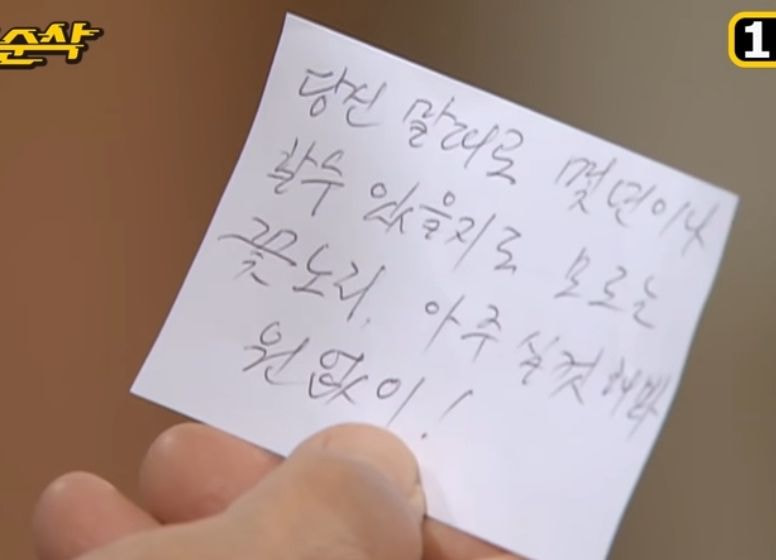 순삭
1
당신 말대로 몇 년이나
할 수 있을지도 모르는
꽃노리, 아주 실컷 해봐
원없이!